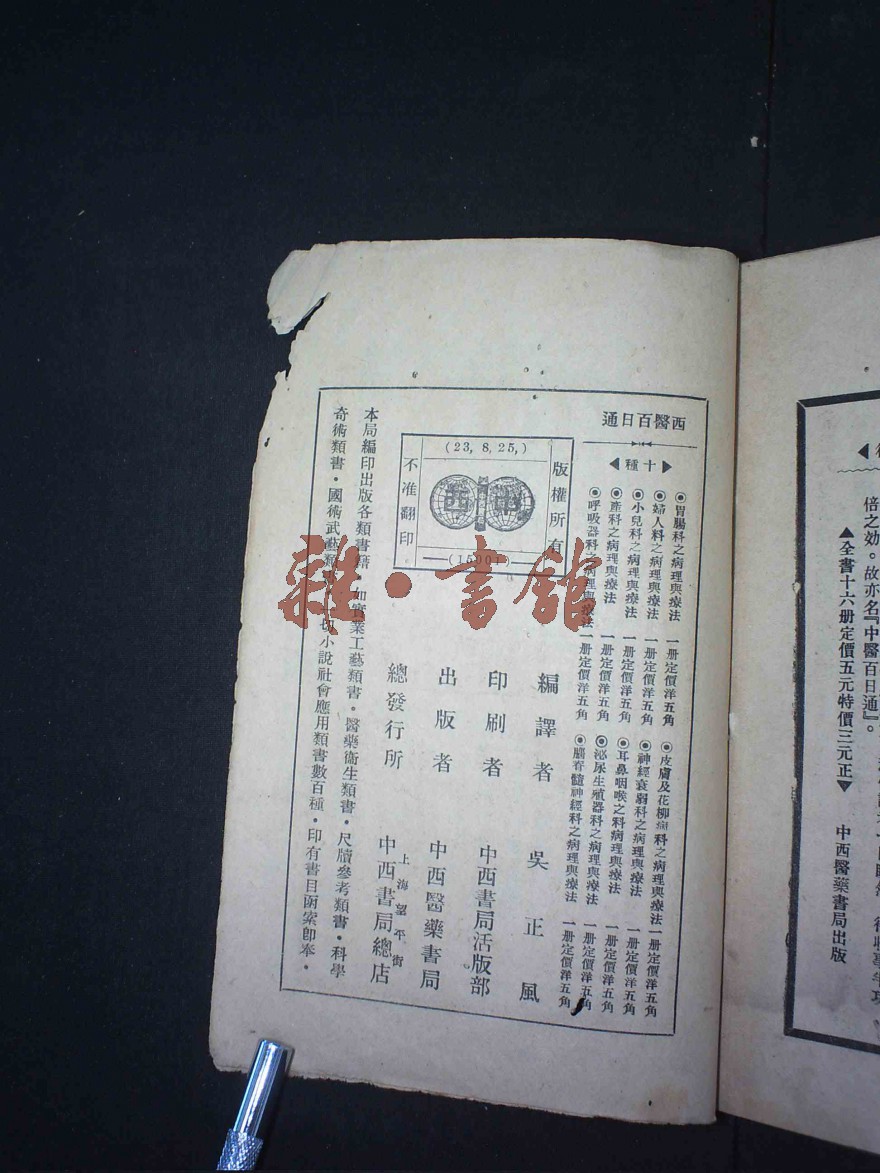 西醫百日通
▶十種◀
◉胃腸科之病理與療法 一册定價洋五角
◉婦人科之病理與療法 一册定價洋五角
◉小兒科之病理與療法 一册定價洋五角
◉產科之病理與療法 一册定價洋五角
◉呼吸器科之病理與療法 一册定價洋五角
◉皮膚及花柳病科之病理與療法 一册定價洋五角
◉神經衰弱科之病理與療法 一册定價洋五角
◉耳鼻咽喉之科病理與療法 一册定價洋五角
◉泌尿生殖器科之病理與療法 一册定價洋五角
◉腦脊髓神經科之病理與療法 一册定價洋五角
版權所有
(23, 8, 25,)
中西
不准翻印
編譯者 吳正風
印刷者 中西書局活版部
出版者 中西醫藥書局
總發行所 上海望平街 中西書局總店
本局編印出版各類書籍・如實業工藝類書・醫藥衛生類書・尺牘參考類書・科學
奇術類書・國術武藝類 切小說社會應用類書數百種・印有書目函索卽奉・
雜・書館
倍之効。故亦名『中醫百日通』。
▲全書十六册定價五元特價三元正▼
中西醫藥書局出版